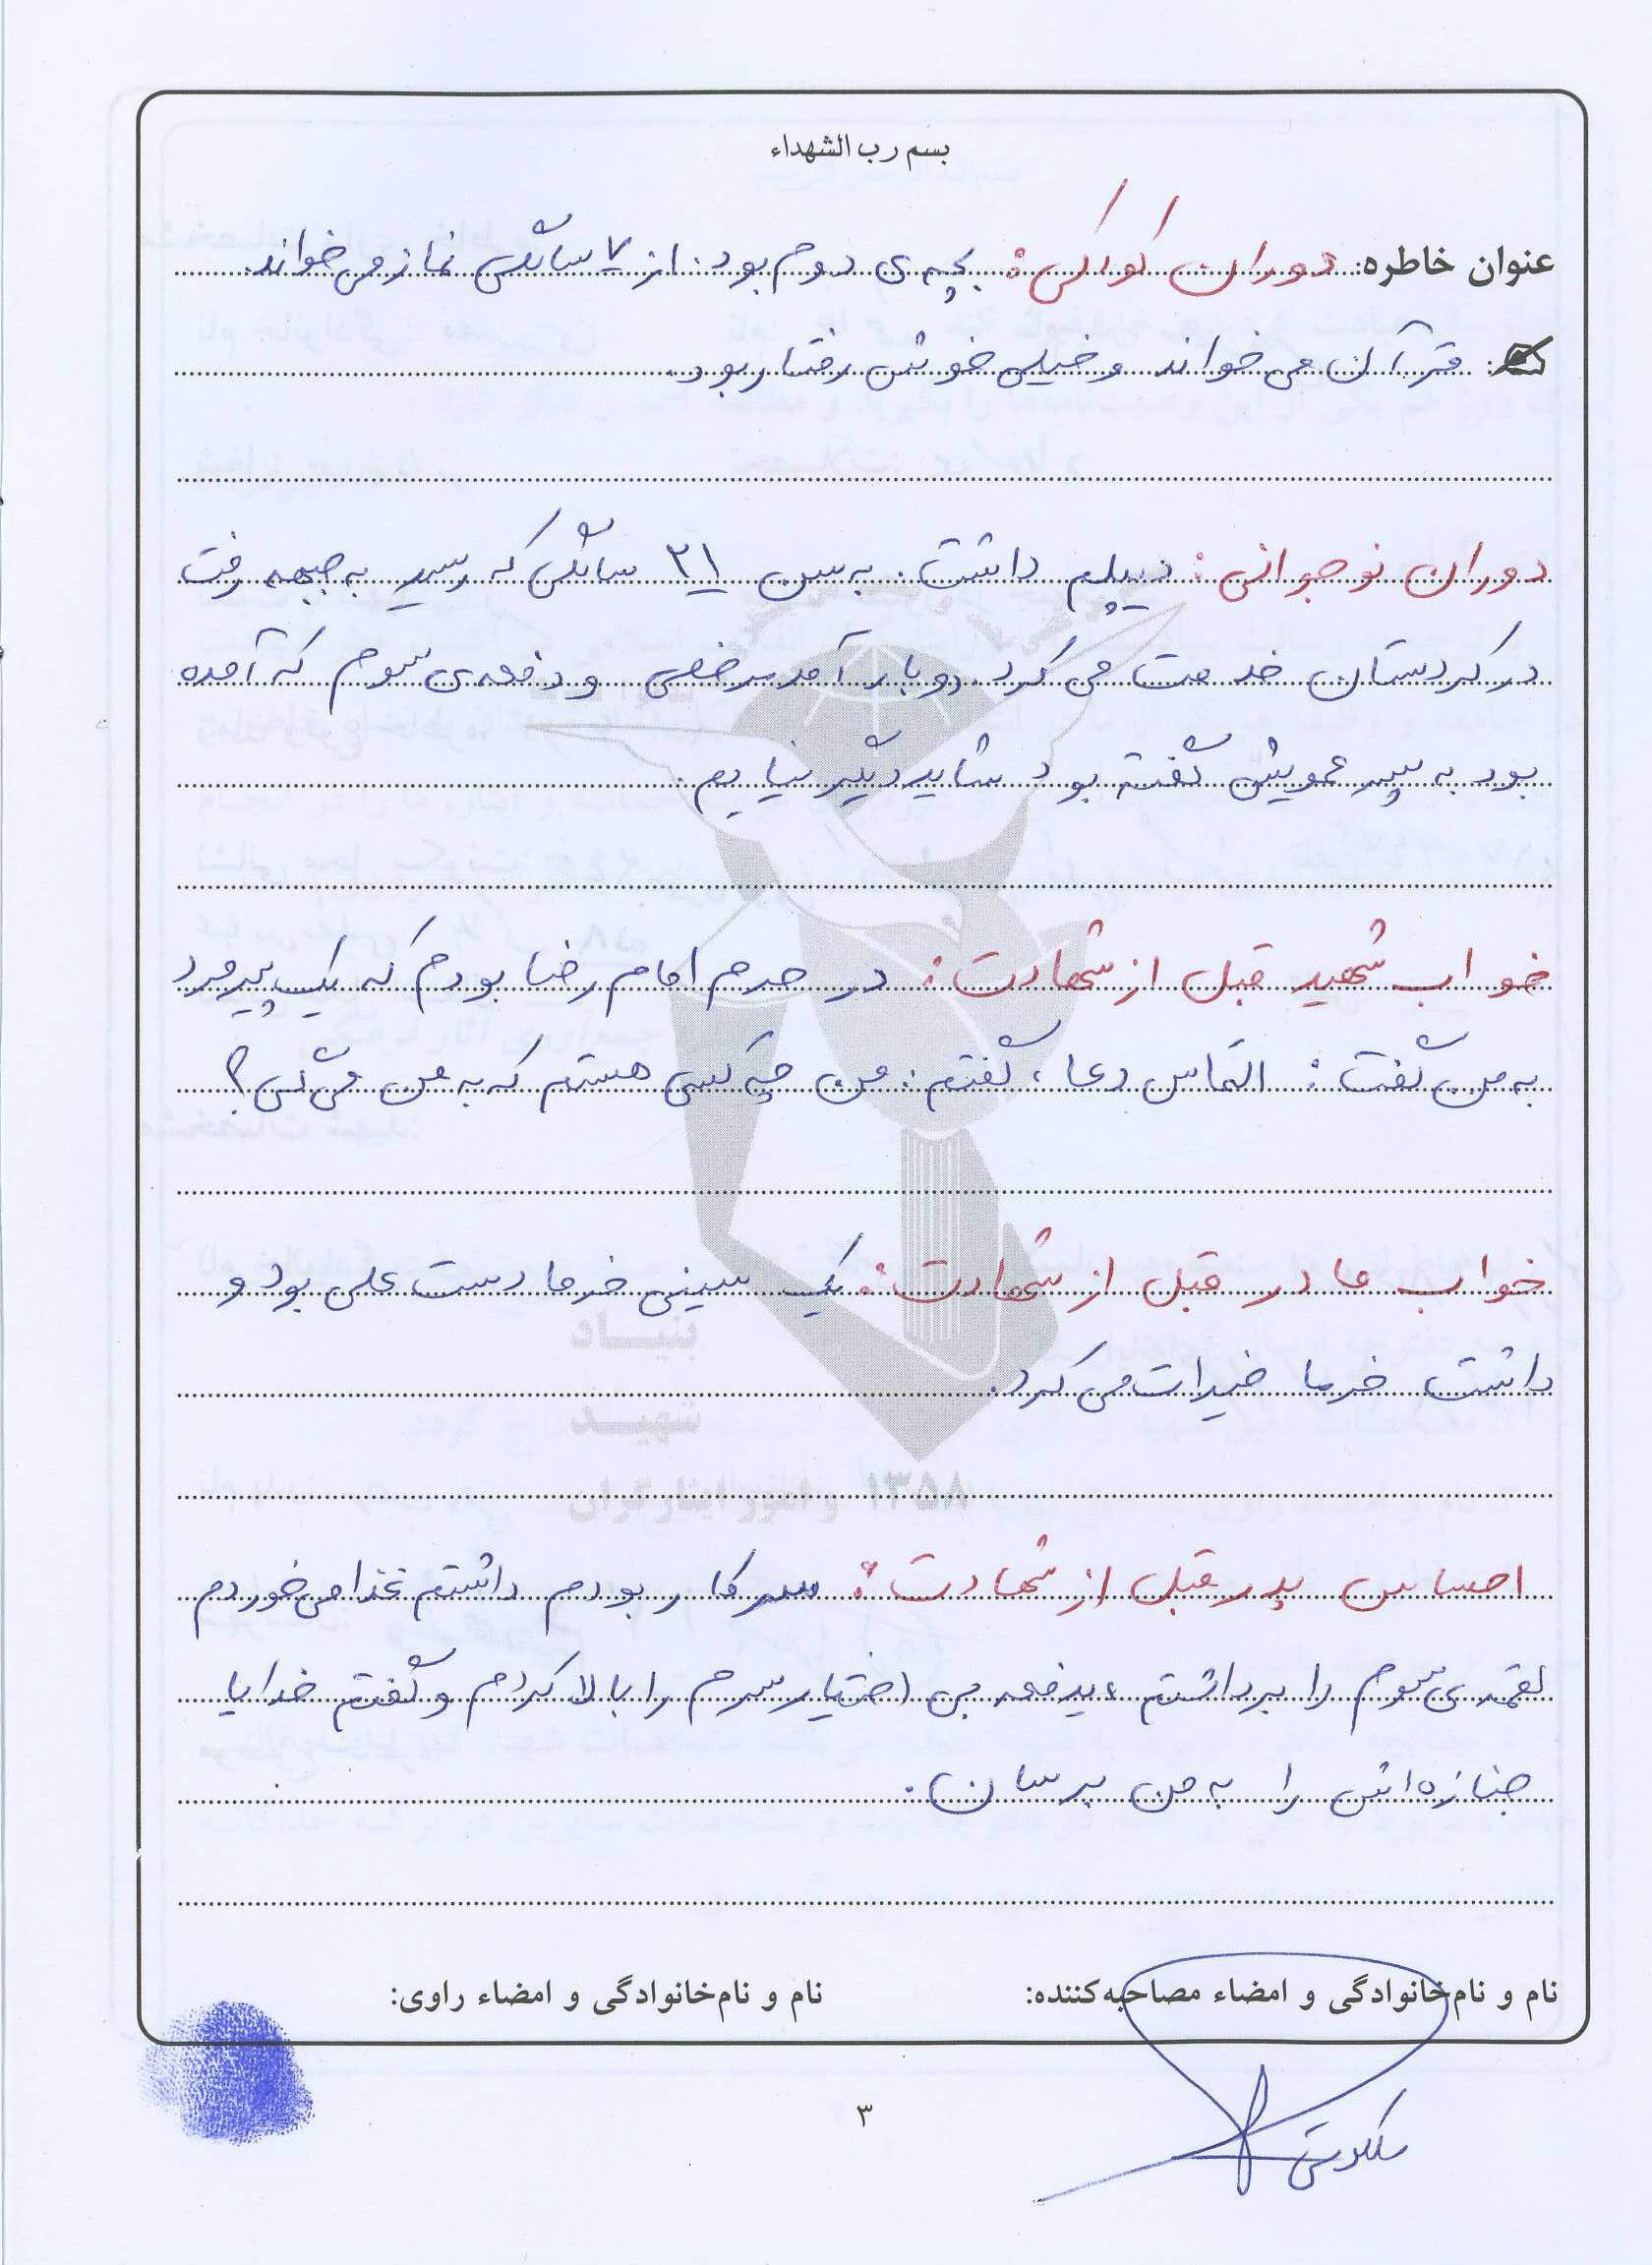 بسم رب الشهداء
عنوان خاطره: دوران کودکی: بچه‌ی دوم بود. از ۷ سالگی نماز می‌خواند.
قرآن می‌خواند و خیلی خوش رفتار بود.
دوران نوجوانی: دیپلم داشت. به سن ۲۱ سالگی که رسید به جبهه رفت
در کردستان خدمت می‌کرد. دوبار آمد مرخصی و دفعه‌ی سوم که آمده
بود به پسر عمویش گفته بود شاید دیگر نیایم.
خواب شهید قبل از شهادت: در حرم امام رضا بودم که یک پیرمرد
به من گفت: التماس دعا، گفتم: من چه کسی هستم که به من می‌گی؟
خواب مادر قبل از شهادت: یک سینی خرما دست علی بود و
داشت خرما خیرات می‌کرد.
بنیاد
شهید
و امور ایثارگران ۱۳۵۸
احساس پدر قبل از شهادت: سر کار بودم داشتم غذا می‌خوردم
لقمه‌ی سوم را برداشتم، یدفعه بی اختیار سرم را بالا کردم و گفتم خدایا
جنازه‌اش را به من برسان.
نام و نام‌خانوادگی و امضاء مصاحبه‌کننده:
نام و نام‌خانوادگی و امضاء راوی:
۳